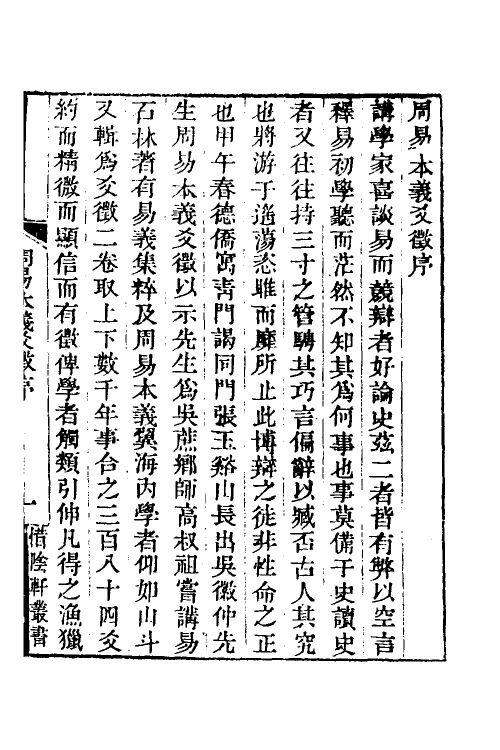 周易本義爻徵序
講學家喜談易而競辯者好論史茲二者皆有弊以空言
釋易初學聽而茫然不知其爲何事也事莫備于史讀史
者又往往持三寸之管騁其巧言偏辭以臧否古人其究
也將游于遥蕩恣睢而靡所止此博辯之徒非性命之正
也甲午春德僑寓靑門謁同門張玉谿山長出吳徽仲先
生周易本義爻徵以示先生爲吳蔗鄉師高叔祖嘗講易
石林著有易義集粹及周易本義翼海內學者仰如山斗
又輯爲爻徵二卷取上下數千年事合之三百八十四爻
約而精微而顯信而有徵俾學者觸類引伸凡得之漁獵
周易本義爻徵序
一
惜陰軒叢書